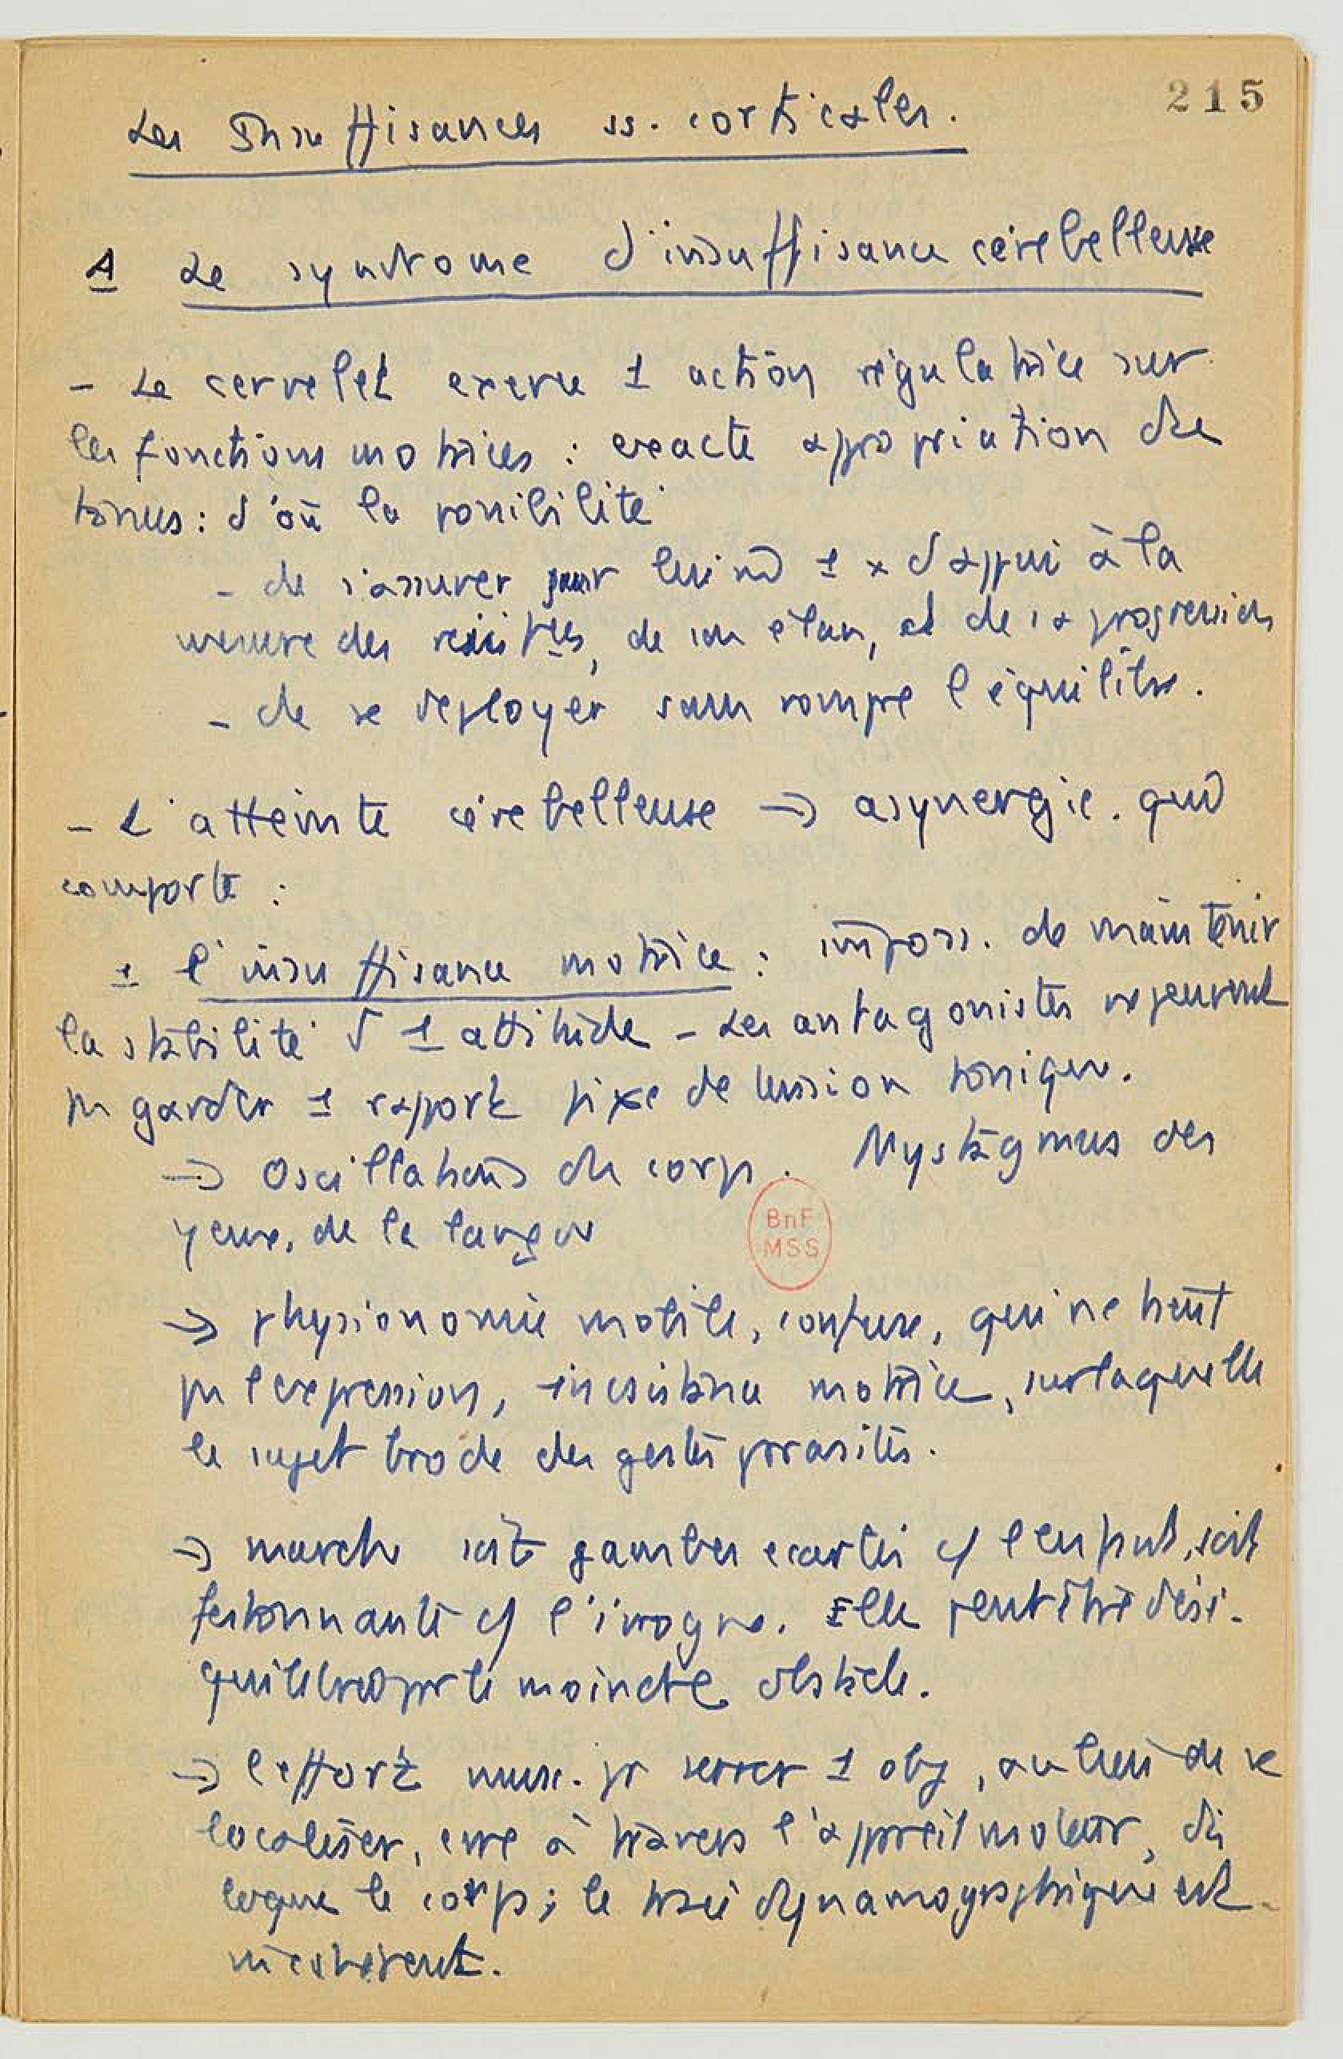 215
Les Insuffisances ss. corticales.
A Le syndrome d'insuffisance cérebelleuse
- Le cervelet exerce 1 action régulatrice sur
les fonctions motrices : exacte apropriation du
tonus : d'où la possibilité
- de s'assurer pour lui 1 x d'appui à la
mesure des résist, de son élan, et de sa progression
- de se deployer sans rompre l'équilibre.
- L'atteinte cérebelleuse → asynergie. qui
comporte :
1 l'insuffisance motrice : imposs. de maintenir
la stabilité d 1 attitude - Les antagonistes ne peuvent
ps garder 1 rapport fixe de tension tonique.
→ Oscillations du corps. Nystagmus des
yeux, de la langue
BnF
MSS
→ physionomie mobile, confuse, qui ne tient
ps l'expression, inconsistance motrice, sur laquelle
le sujet brode des gestes parasites.
→ marche soit jambes ecartés cf l'enfant, soit
festonnante cf l'ivrogne. Elle peut être dési-
quilibrée par le moindre obstacle.
→ l'effort musc. pr serrer 1 obj, au lieu de se
localiser, erre à travers l'appareil moteur, dis
loque le corps ; le tracé dynamographique est
incohérent.